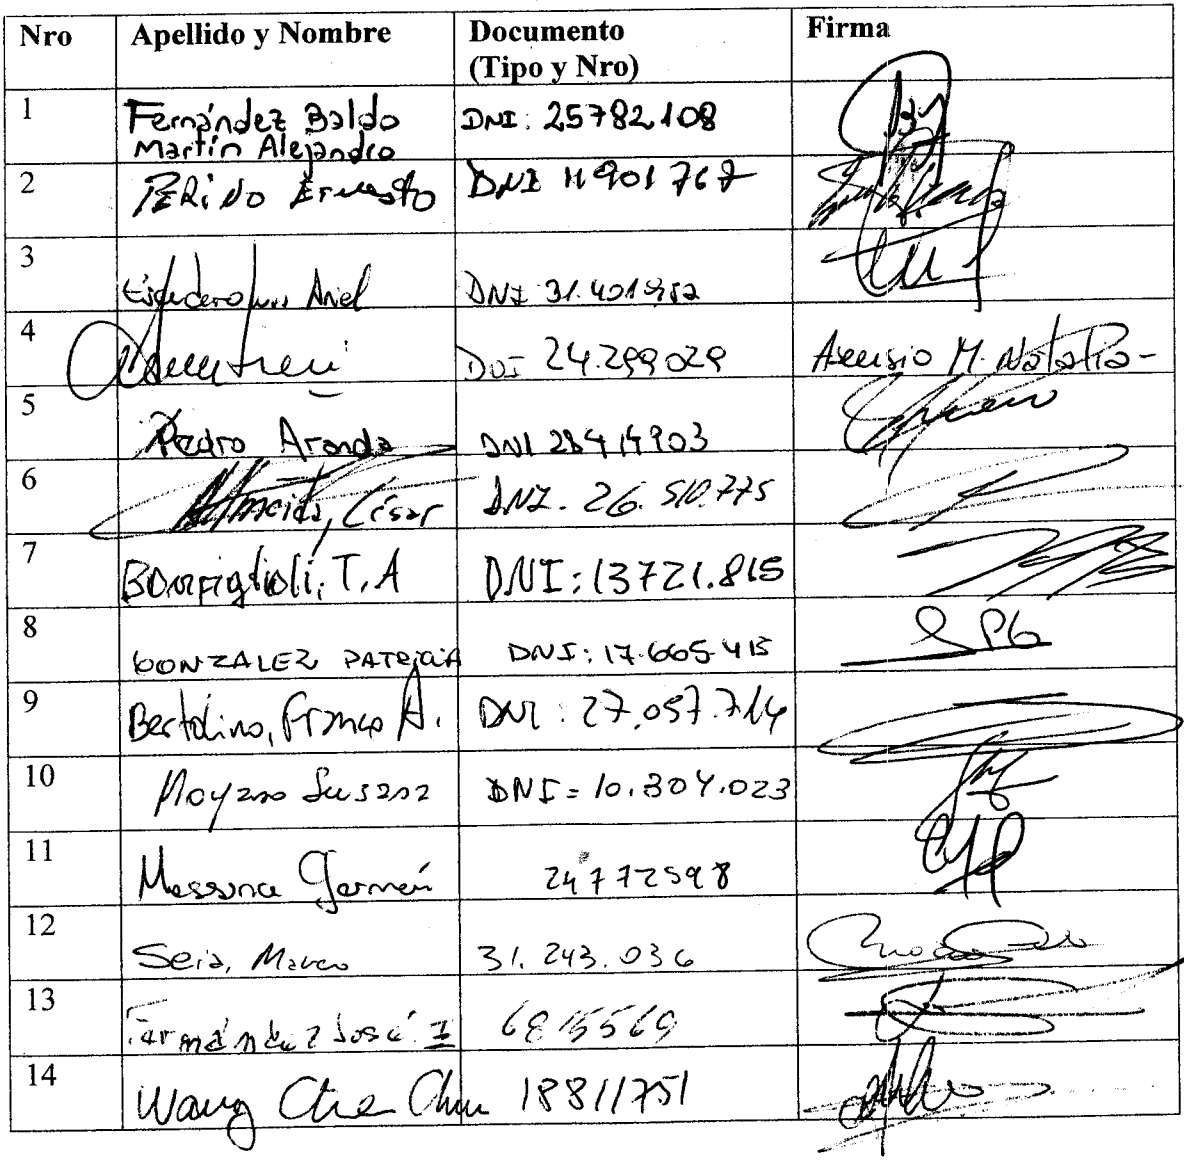 Nro Apellido y Nombre Documento Firma
(Tipo y Nro)
1 Fernández Baldo DNI: 25782108
Martín Alejandro
2 PERINO Ernesto DNI 11901767
3 Escudero Ariel DNI 31.401952
4 DNI 24.299029 Asensio M. Natalia-
5 Pedro Aranda DNI 28414903
6 Almeida, César DNI. 26.510.775
7 Bonfiglioli, T.A DNI: 13721.815
8 GONZALEZ PATRICIA DNI: 17.665.415
9 Bertolino, Franco A. DNI: 27.057.714
10 Moyano Susana DNI = 10.304.023
11 Messina Germán 24772598
12 Seia, Marco 31.243.036
13 Fernández José I 6815569
14 Wang Chun 18811751